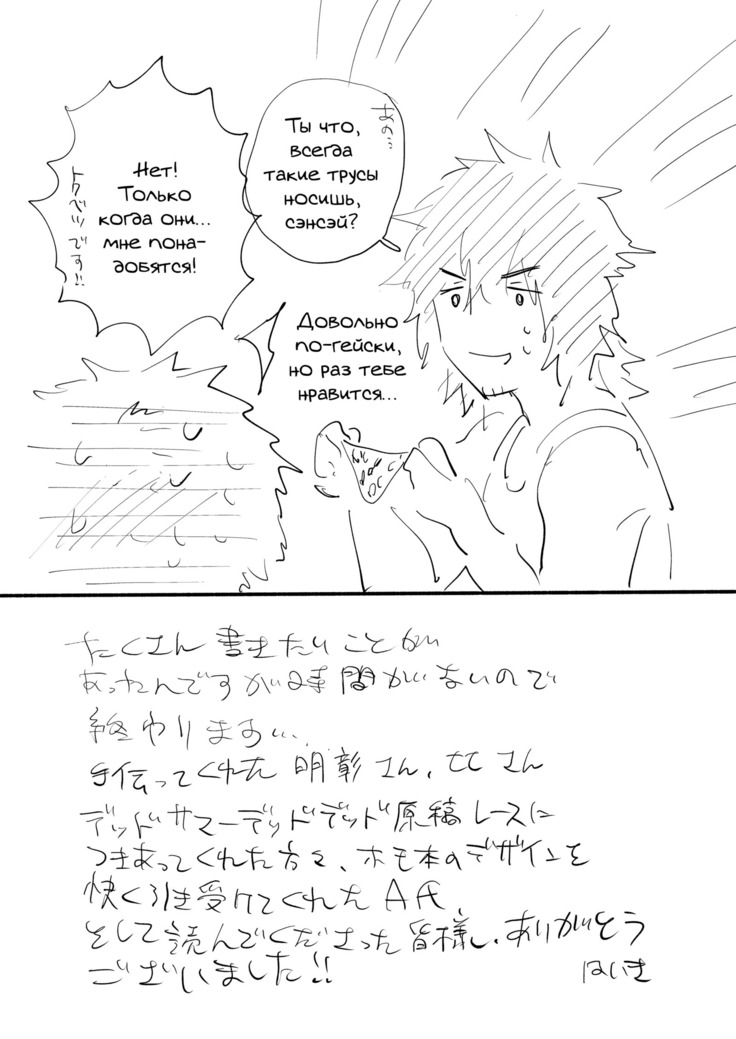 あの…
Ты что,
всегда
такие трусы
носишь,
сэнсэй?
Нет!
Только
когда они...
мне пона-
добятся!
トクベツです!!
Довольно
по-гейски,
но раз тебе
нравится...
たくさん書きたいことが
あったんですが時間がないので
終わります…
手伝ってくれた 明彰さん、むさん
デッドサマーデッドデッド原稿レースに
つきあってくれた方々、ホモ本のデザインを
快く引き受けてくれた A氏
そして読んでくださった皆様し、ありがとう
ございました!!
はいき